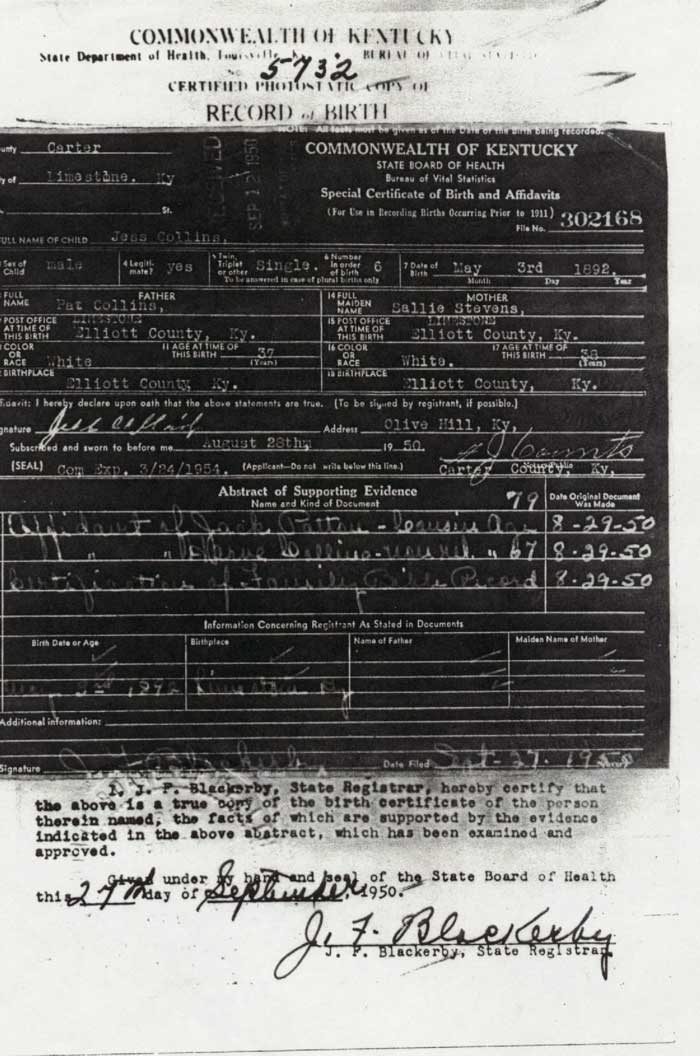 COMMONWEALTH OF KENTUCKY
State Department of Health, Louisville, Ky. BUREAU OF VITAL STATISTICS
No. 5732
CERTIFIED PHOTOSTATIC COPY OF
RECORD of BIRTH
NOTE: All facts must be given as of the Date of the Birth being recorded.
unty Carter
COMMONWEALTH OF KENTUCKY
STATE BOARD OF HEALTH
Bureau of Vital Statistics
y of Limestone. Ky
SEP 12 1950
Special Certificate of Birth and Affidavits
(For Use in Recording Births Occurring Prior to 1911)
St.
File No. 302168
FULL NAME OF CHILD Jess Collins,
Sex of Child male 4 Legitimate? yes 5 Twin, Triplet or other Single. 6 Number in order of birth 6 7 Date of Birth May 3rd 1892.
To be answered in case of plural births only Month Day Year
FULL NAME FATHER Pat Collins, 14 FULL MAIDEN NAME MOTHER Sallie Stevens,
POST OFFICE AT TIME OF THIS BIRTH LIMESTONE Elliott County, Ky. 15 POST OFFICE AT TIME OF THIS BIRTH LIMESTONE Elliott County, Ky.
COLOR OR RACE White 11 AGE AT TIME OF THIS BIRTH 37 (Years) 16 COLOR OR RACE White. 17 AGE AT TIME OF THIS BIRTH 38 (Years)
BIRTHPLACE Elliott County, Ky. 18 BIRTHPLACE Elliott County, Ky.
fidavit: I hereby declare upon oath that the above statements are true. (To be signed by registrant, if possible.)
gnature Jess Collins Address Olive Hill, Ky,
Subscribed and sworn to before me August 28thm 1950.
(SEAL) Com Exp. 3/24/1954. (Applicant—Do not write below this line.) Carter County, Ky,
Abstract of Supporting Evidence
Name and Kind of Document
79
Date Original Document Was Made
Affidavit of Jack Patton - Cousin Age 8-29-50
" " 67 8-29-50
Certification of Family Bible Record 8-29-50
Information Concerning Registrant As Stated in Documents
Birth Date or Age Birthplace Name of Father Maiden Name of Mother
May 3rd 1892 Limestone Ky
Additional information:
Signature J. F. Blackerby Date Filed Sept-27-1950
I, J. F. Blackerby, State Registrar, hereby certify that
the above is a true copy of the birth certificate of the person
therein named, the facts of which are supported by the evidence
indicated in the above abstract, which has been examined and
approved.
Given under my hand and seal of the State Board of Health
this 27th day of September, 1950.
J. F. Blackerby
J. F. Blackerby, State Registrar